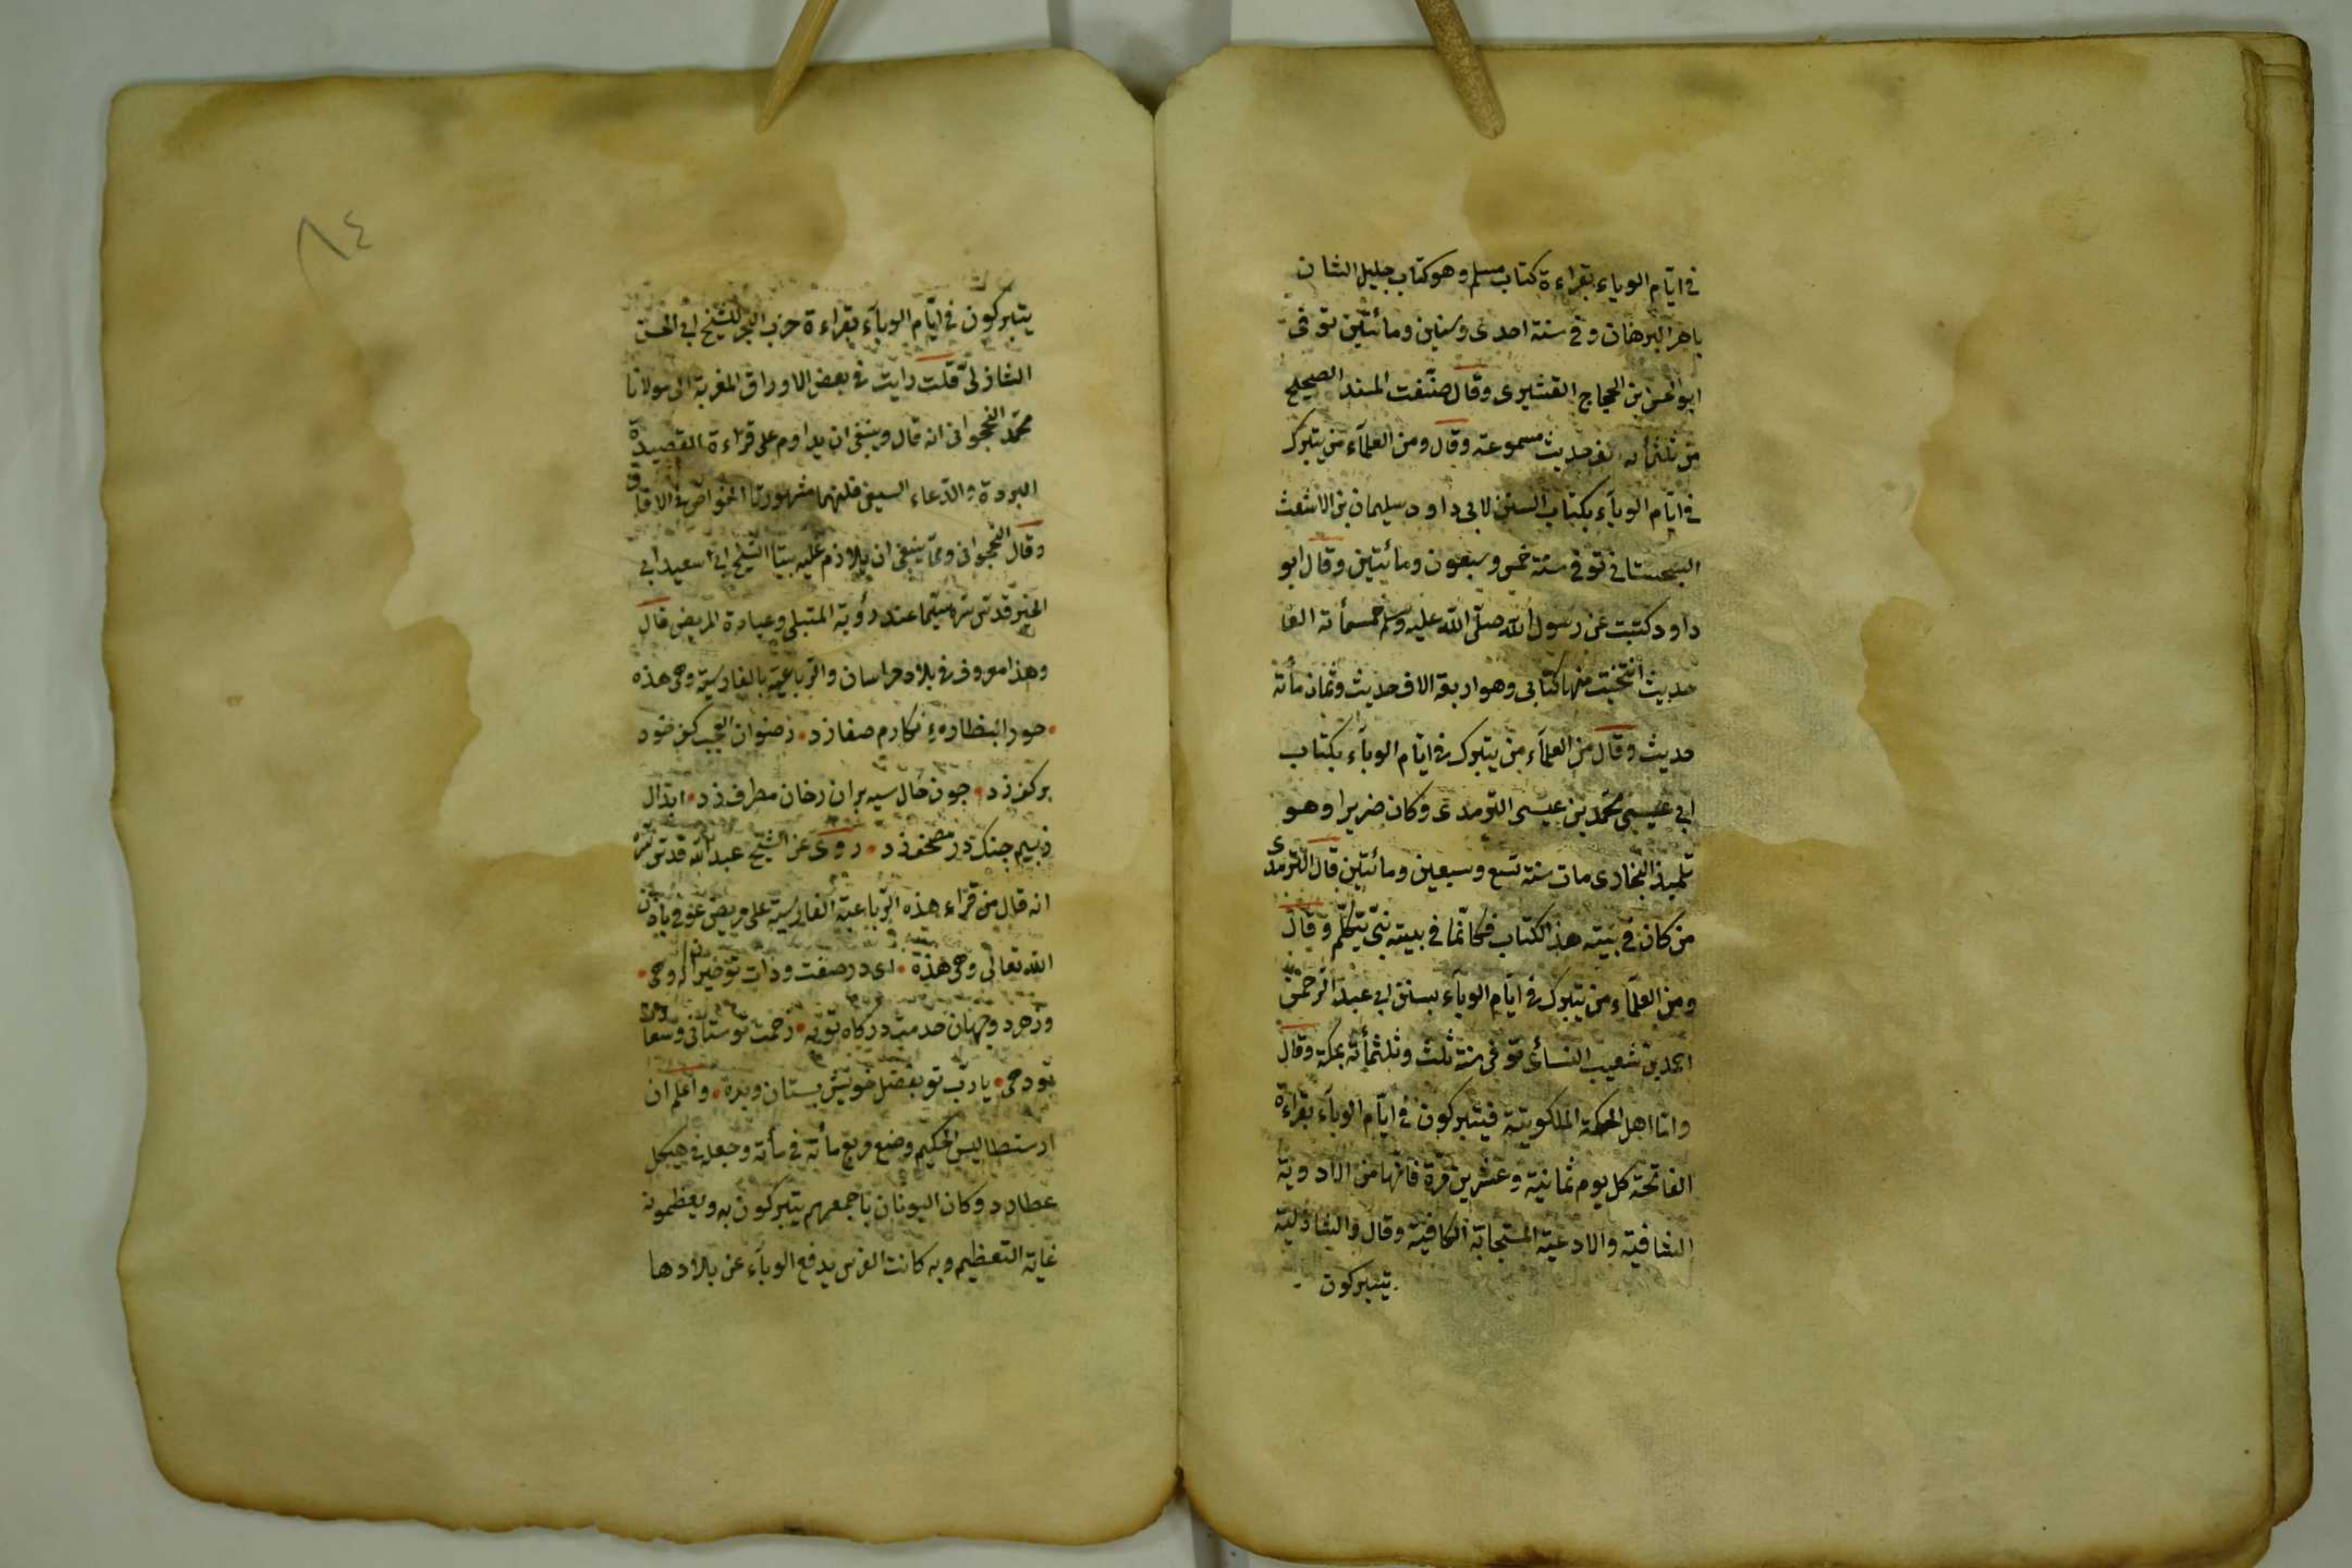 في ايّام الوباء بقراءة كتاب مسلم وهو كتاب جليل الشان
باهر البرهان وفي سنة احدى وستين ومائتين توفى
ابو الحسن بن الحجاج القشيرى وقال صنّفت المسند الصحيح
من ثلثمأنه الف حديث مسموعة وقال ومن العلمآء من يتبرك
في ايّام الوبآء بكتاب السنن لابى داود سليمان بن الاشعث
السجستانى توفى سنة خمس وسبعون ومائتين وقال ابو
داود كتبت عن رسول الله صلّى الله عليه وسلم خمسمأته الف
حديث انتخبت منها كتابى وهو اربعة الاف حديث وثمان مأته
حديث وقال من العلمآء من يتبرك في ايّام الوبآء بكتاب
ابى عيسى محمّد بن عيسى الترمدى وكان ضريرا وهو
تلميذ البخارى مات سنة تسع وسبعين ومائتين قال الترمدى
من كان في بيته هذا الكتاب فكانّما في بيته نبىّ يتكلّم وقال
ومن العلمآء من يتبرك في ايّام الوبآء بسنن ابى عبد الرّحمن
احمد بن شعيب النسائى توفى سنة ثلث وثلثمأئة بمكة وقال
وامّا اهل الحكمة الملكوتية فيتبركون في ايّام الوبآء بقراءة
الفاتحة كل يوم ثمانية وعشرين مرّة فانّها من الادوية
الشافية والادعية المستجابة الكافية وقال والشاذلية
يتبركون
٨٤
يتبركون في ايّام الوبآء بقراءة حزب البحر للشيخ ابى الحسن
الشاذلىّ قلت رايت في بعض الاوراق المغربة الى مولانا
محمّد النخجوانى انه قال وينبغى ان يداوم على قراءة القصيدة
البردة والدّعاء السيفى فانهما مشهورتا الخواص في الافاق
وقال النخجوانى وممّا ينبغى ان يلازم عليه بيتا الشيخ ابى سعيد ابى
الخير قدّس سرّه سيّما عند رؤية المبتلى وعيادة المريض قال
وهذا معروف في بلاد خراسان والرّباعيّة بالفارسيّة وهى هذه
حورا بنظاره نكارم صف زد رضوان العجب كف خود
بركف زد جون خال سيه بران رخان مطرف زد ابدال
زبيم جنك در مصحف زد روى عن الشيخ عبد الله قدّس سرّه
انه قال من قراء هذه الرّباعيّة الفارسيّة على مريض عوفى باذن
الله تعالى وهى هذه اى در صفت وذات تو
ودر هر دو جهان خدمت دركاه تو به زحمت تو ستانى وشفا
تو دهى يا ربّ تو بفضل خويش بستان وبده واعلم ان
ارستطاليس الحكيم وضع مربع مأته في مأته وجعله في هيكل
عطارد وكان اليونان باجمعهم يتبركون به ويعظمونه
غاية التعظيم وبه كانت الفرس يدفع الوبآء عن بلادها